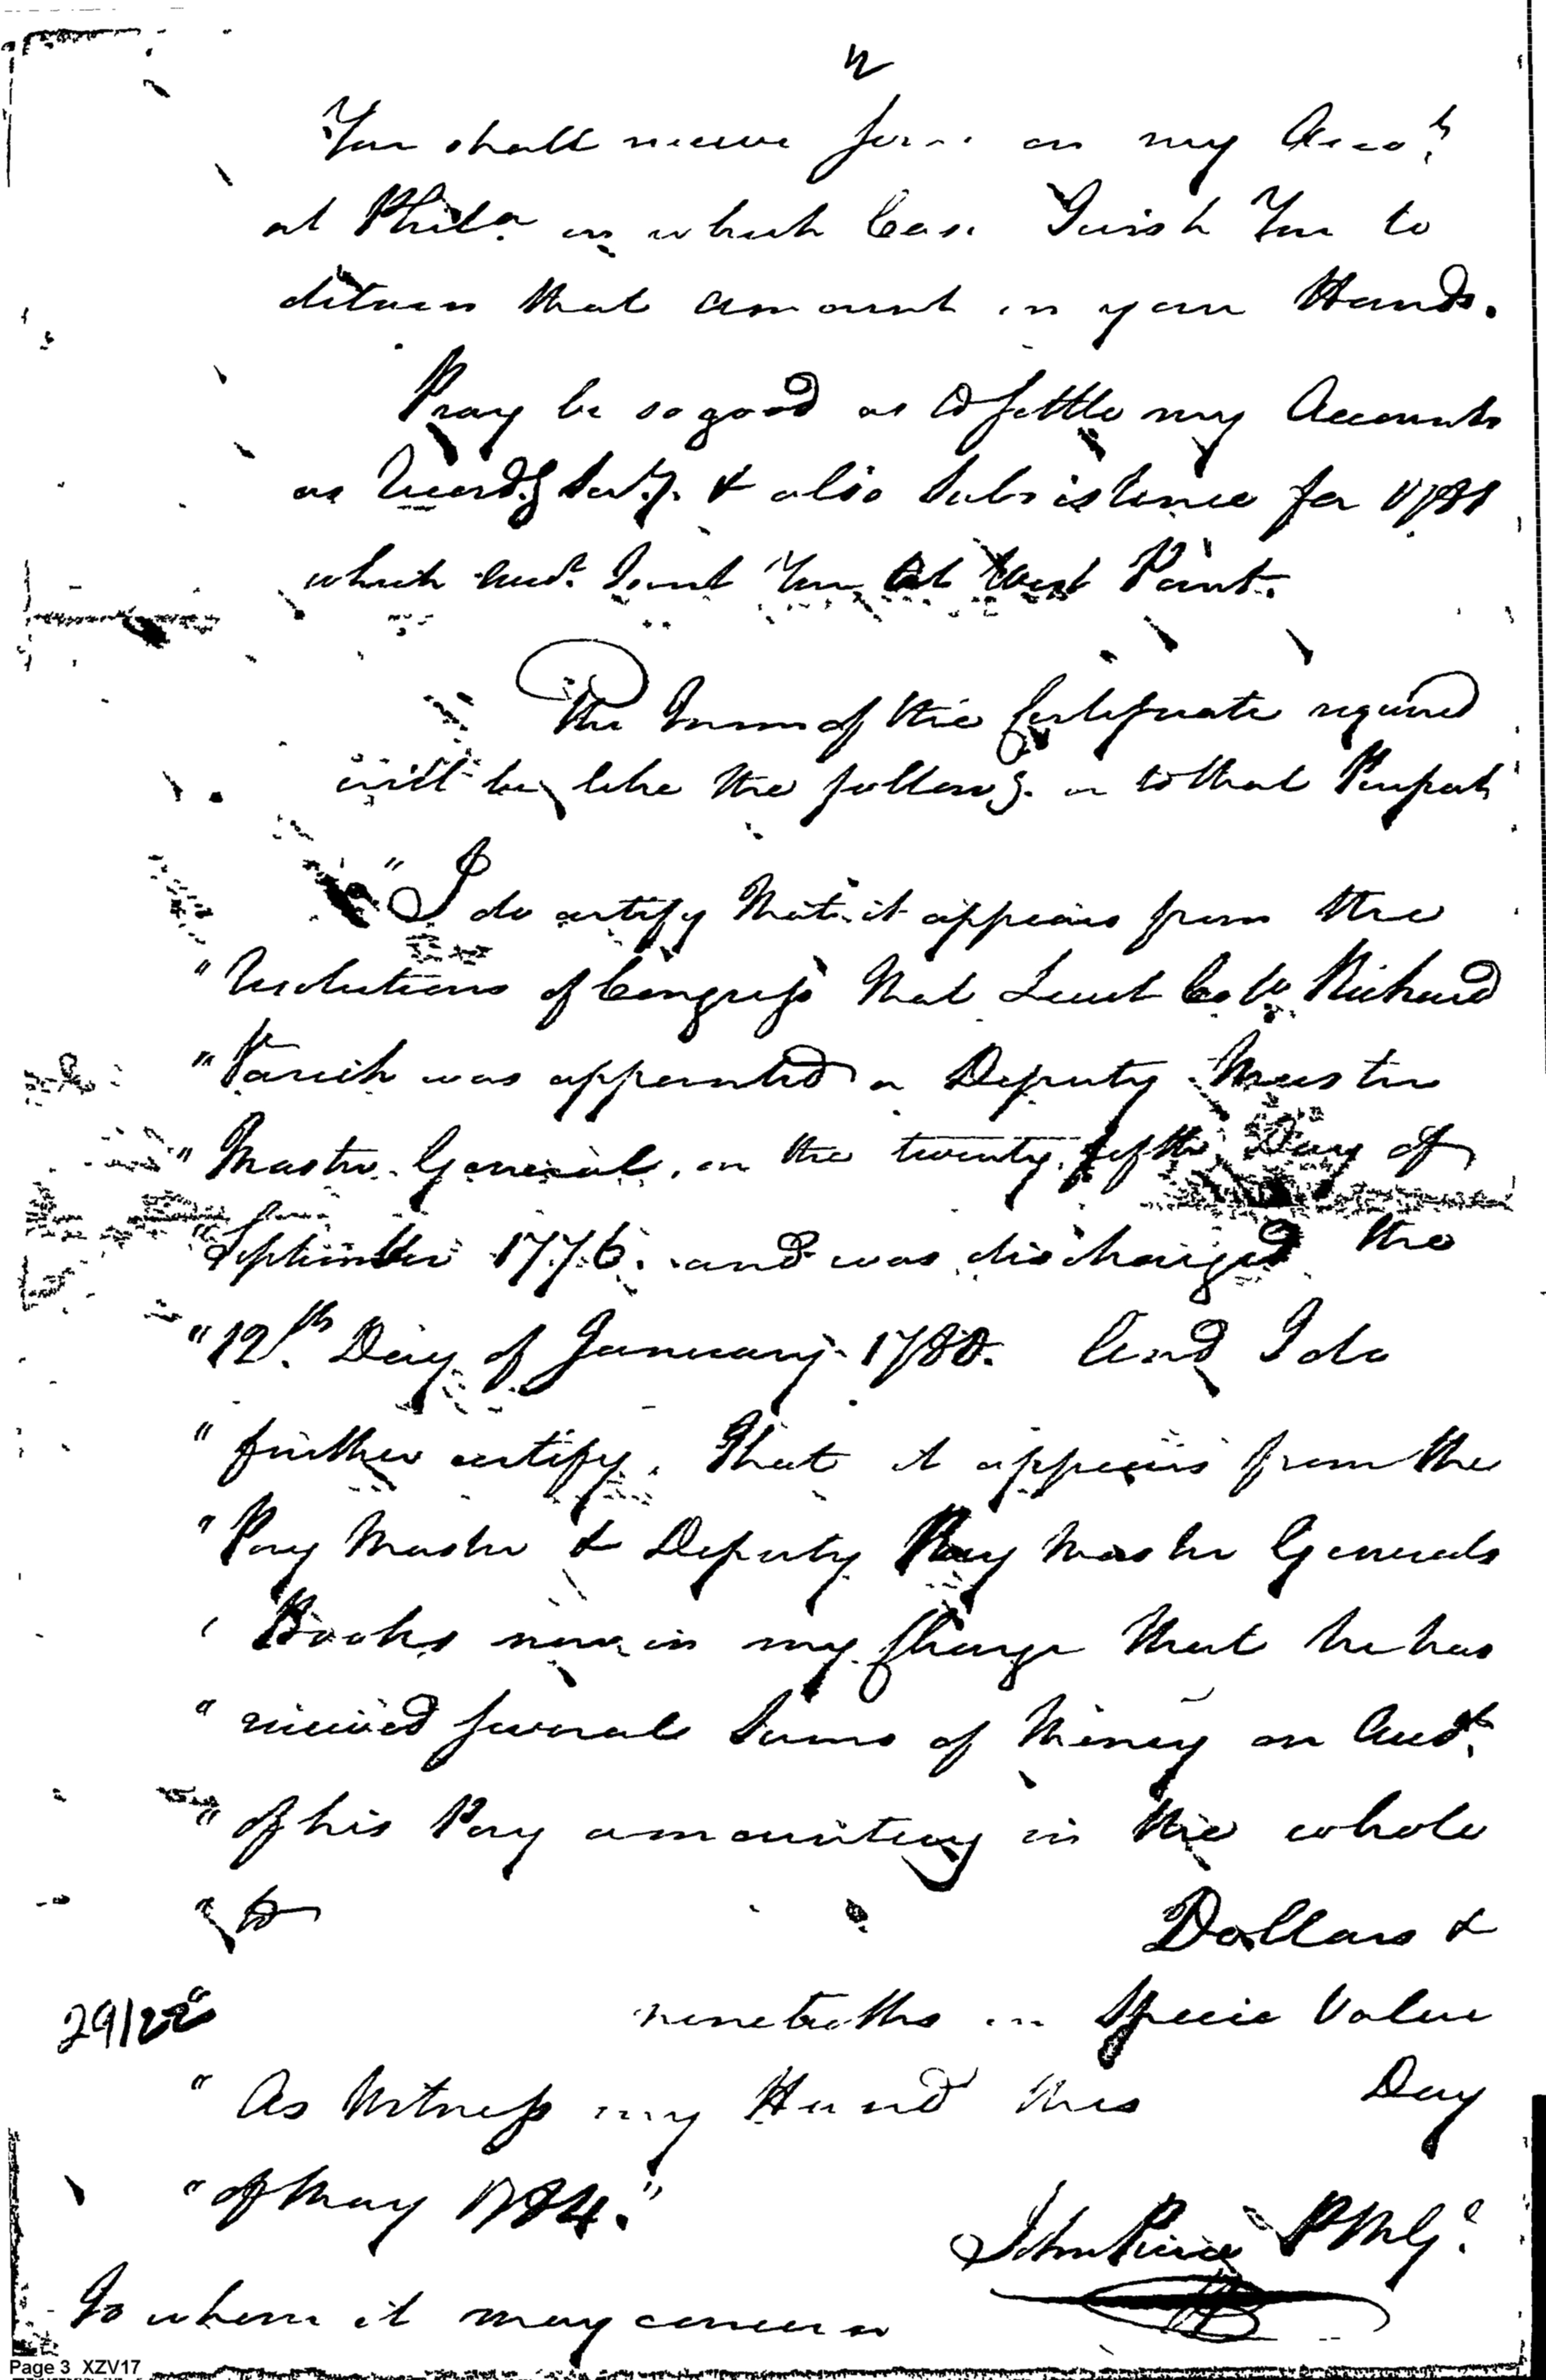 2
You shall receive some on my Acco.ts
at Phila. in which Case I wish You to
detain that amount in your Hands.
Pray be so good as to settle my Accounts
as Record.g Sec.y & also Subsistence for 1781
which Acct. I sent You at West Point.
The Form of the Certificate required
will be like the follow.g. or to that Purport
"I do certify that it appears from the
"Resolutions of Congress that Lieut Colo. Richard
"Varick was appointed a Deputy Muster
"Master General, on the twenty fifth Day of
"September 1776. and was discharged the
"12.th Day of January 1780. And I do
"further certify, That it appears from the
"Pay Master & Deputy Pay Master Generals
"Books now in my Charge that he has
"received several Sums of Money on Acct.
"of his Pay amounting in the whole
"to Dollars &
29/22" ninetieths in Specie Value
"As Witness my Hand this Day
"of May 1784."
John Pierce P M Gl.
To whom it may concern
Page 3 XZV17